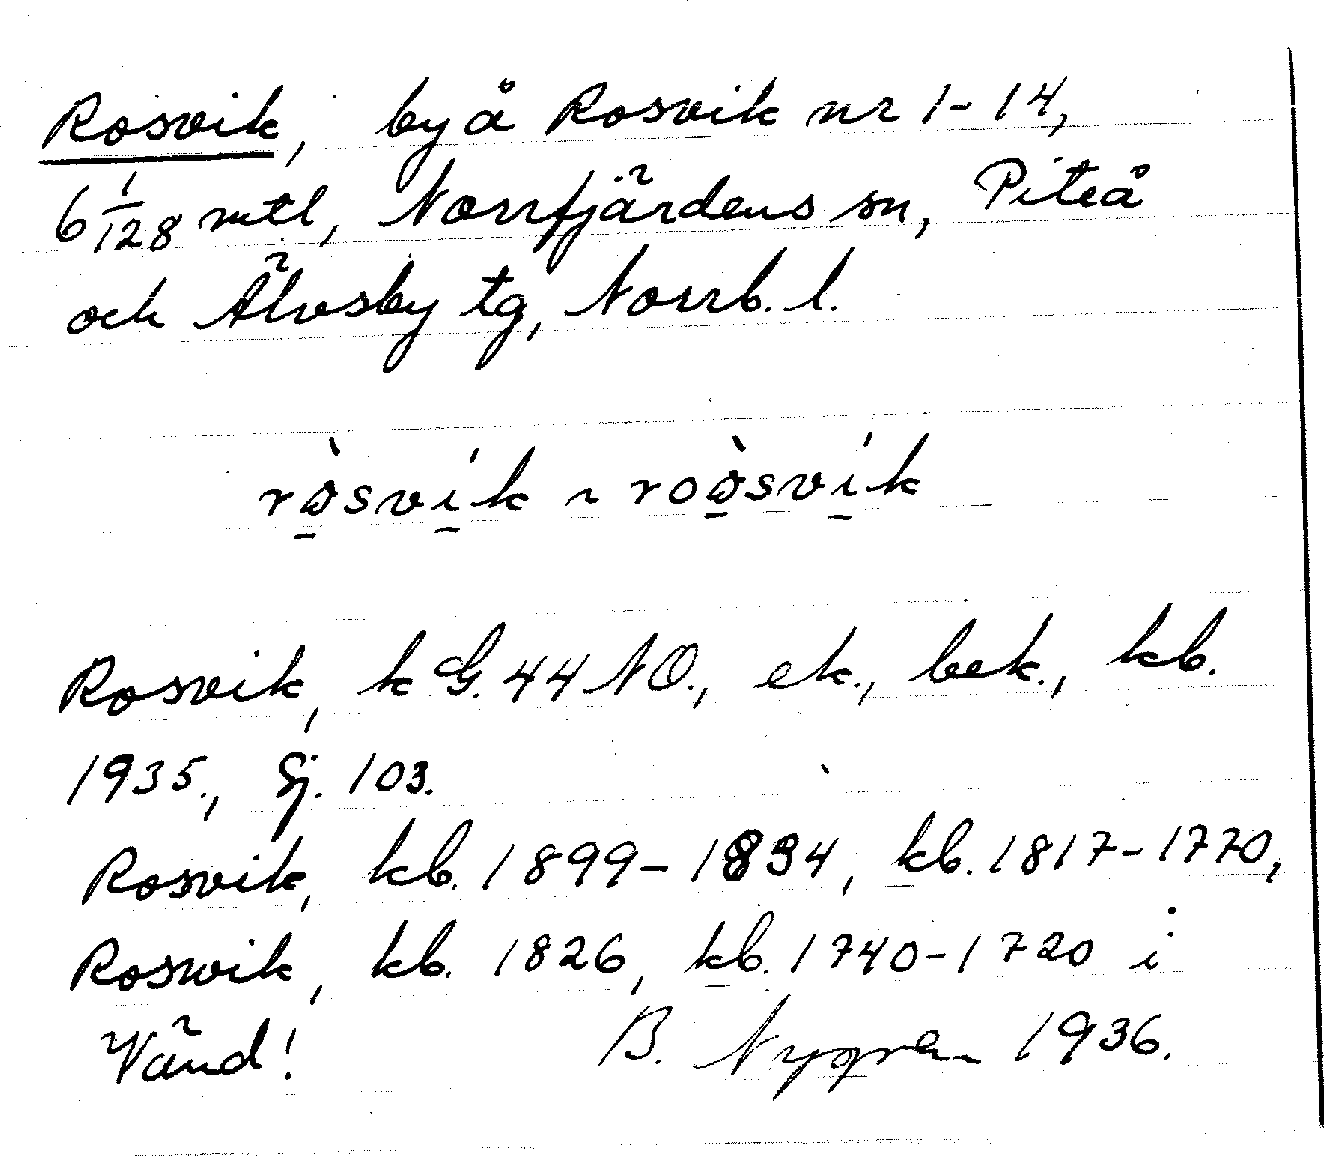 Rosvik, by å Rosvik nr 1-14,
6 1/128 mtl, Norrfjärdens sn, Piteå
och Älvsby tg, Norrb. l.
Rosvik, k G. 44 NO., ek., bek., kb.
1935., Sj. 103.
Rosvik, kb. 1899-1834, kb. 1817-1770,
Roswik, kb. 1826, kb. 1740-1720 i
Vänd! B. Nygren 1936.